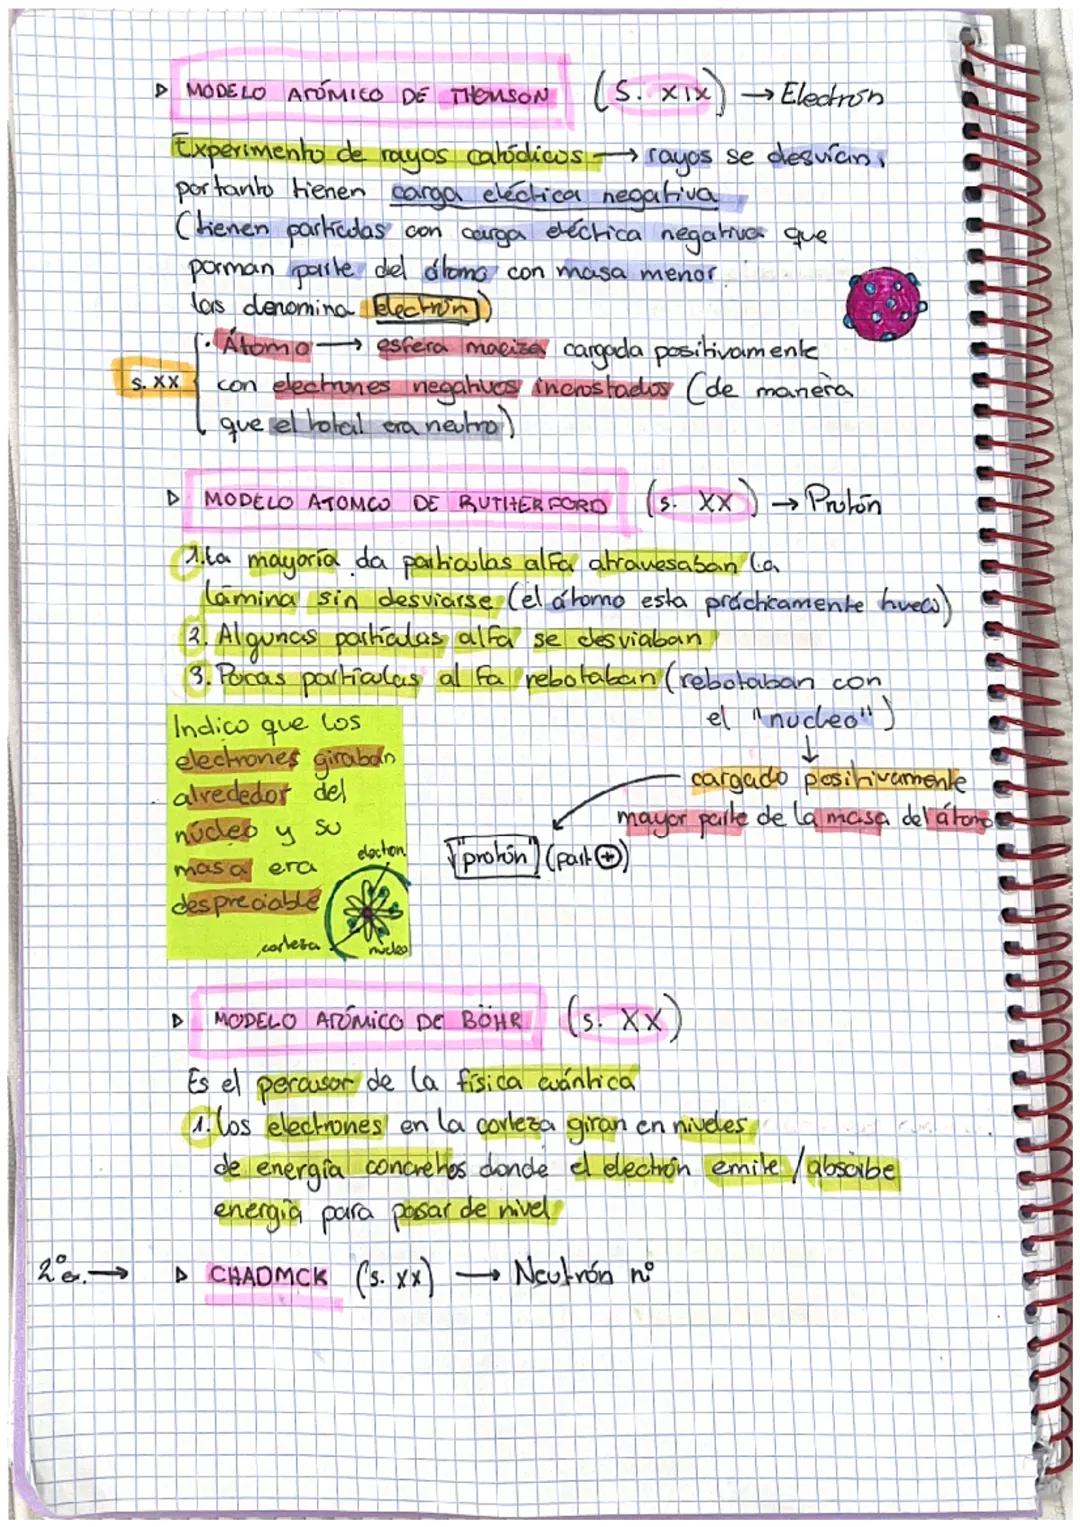 ▷ MODELO ATÓMICO DE THOMSON (S. XIX) → Electrón
Experimento de rayos catódicos → rayos se desvían,
por tanto tienen carga eléctrica negativa
(tienen partículas con carga eléctrica negativa que
porman parte del átomo con masa menor
las denomina electrón)
· Átomo → esfera maciza cargada positivamente
s. XX
con electrones negativos incrostados (de manera
que el total era neutro)
▷ MODELO ATOMCO DE RUTHERFORD (s. XX) → Protón
1. La mayoría da particulas alfa atravesaban la
lámina sin desviarse (el átomo esta prácticamente hueco)
2. Algunas partículas alfa se desviaban
3. Pocas partículas alfa rebotaban (rebotaban con
el "nucleo")
↓
cargado positivamente
mayor parte de la masa del átomo
"protón" (part ⊕)
Indico que los
electrones giraban
alrededor del
núcleo y su
masa era
despreciable
electron
corteza
nucleo
▷ MODELO ATÓMICO DE BÖHR (s. XX)
Es el percusor de la física cuántica
1. Los electrones en la corteza giran en niveles
de energía concretos donde el electrón emite / absorbe
energía para pasar de nivel
2º → ▷ CHADMCK (s. XX) → Neutrón nº